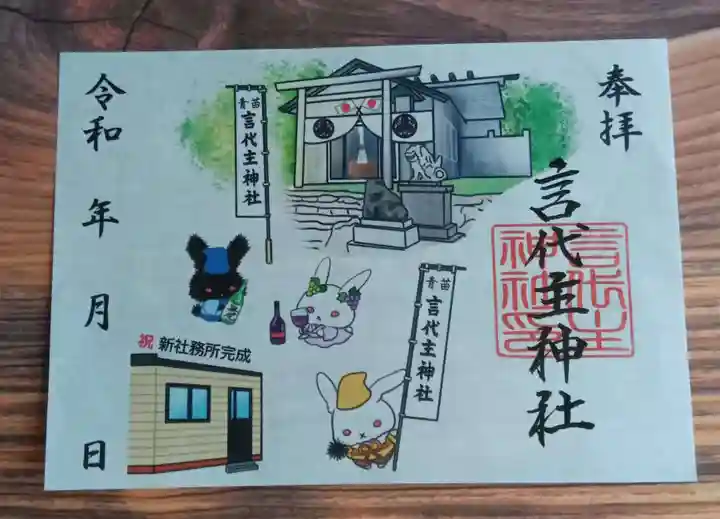 奉拝
言代主神社
言代主
神社
神印
青苗
言代主神社
青苗
言代主神社
祝 新社務所完成
令和 年 月 日